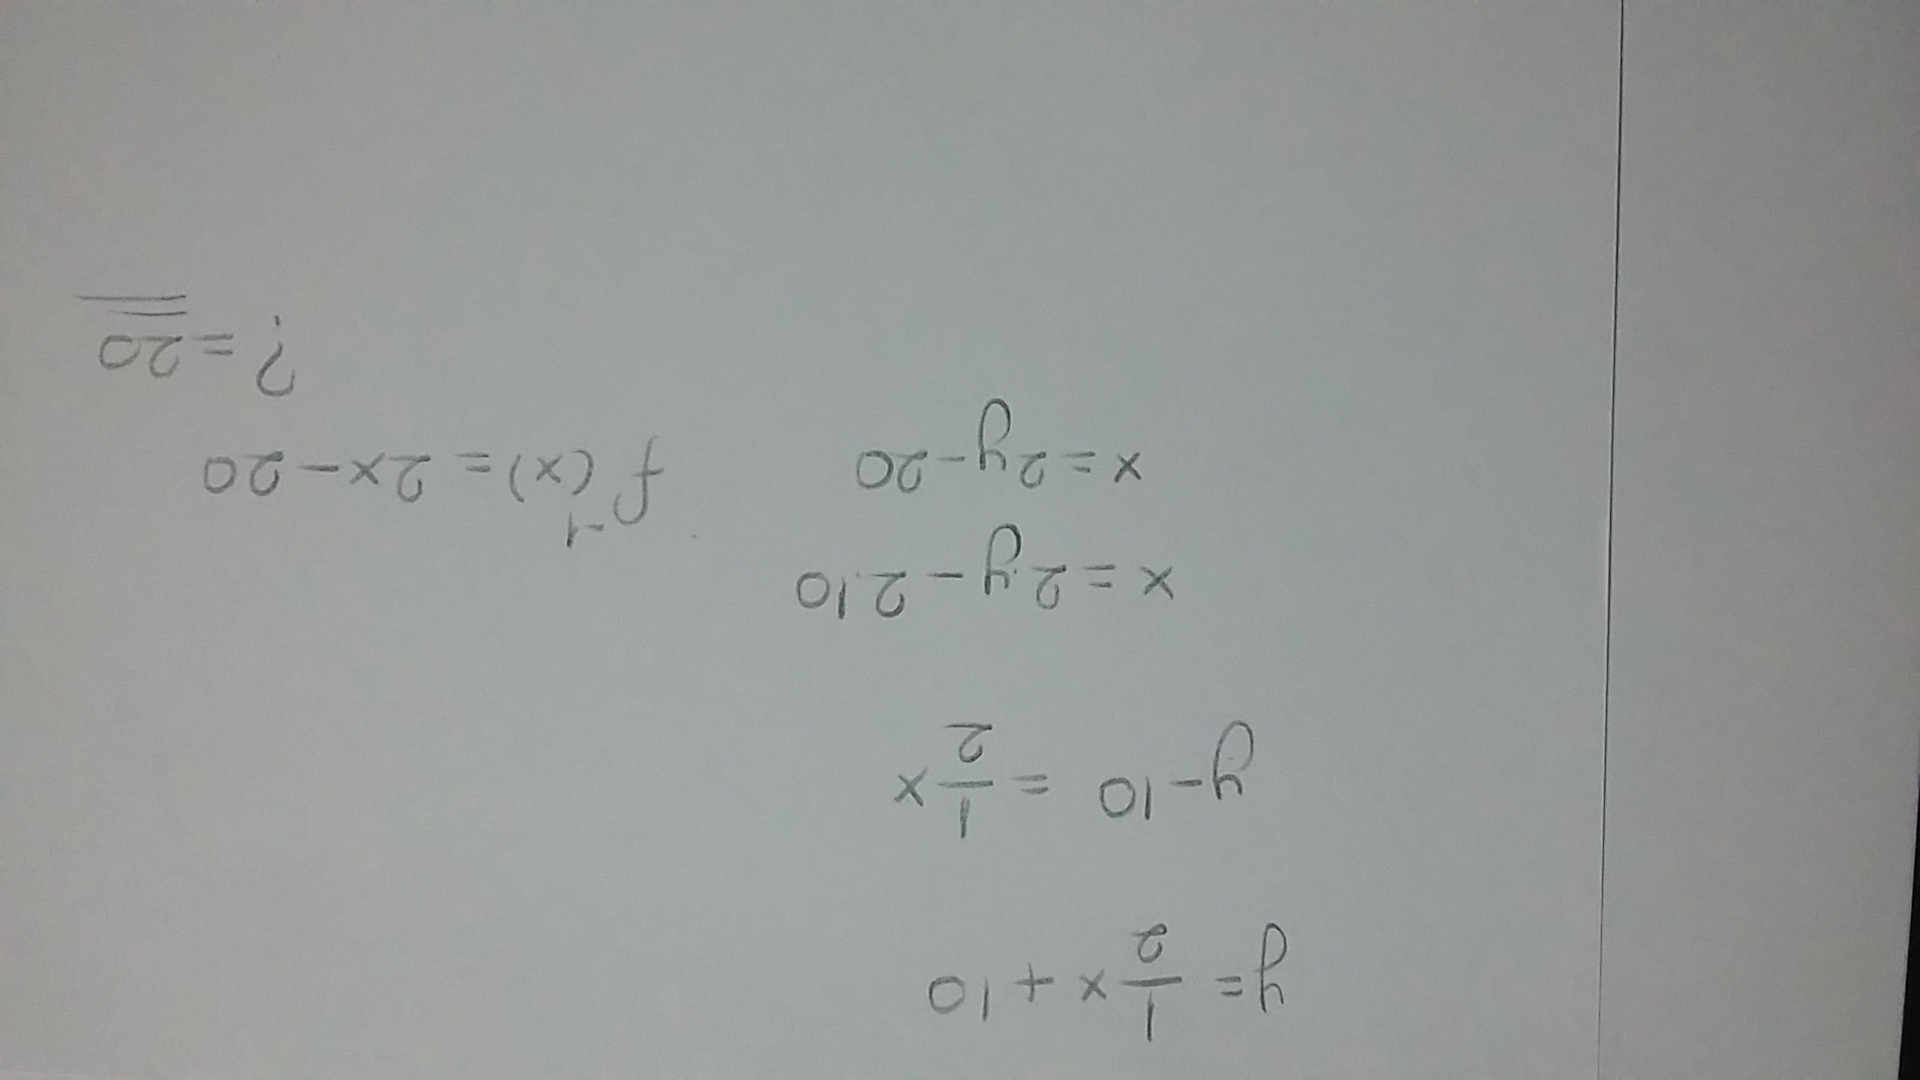 y = 1/2 x + 10
y - 10 = 1/2 x
x = 2y - 2.10
x = 2y - 20
f⁻¹(x) = 2x - 20
? = 20